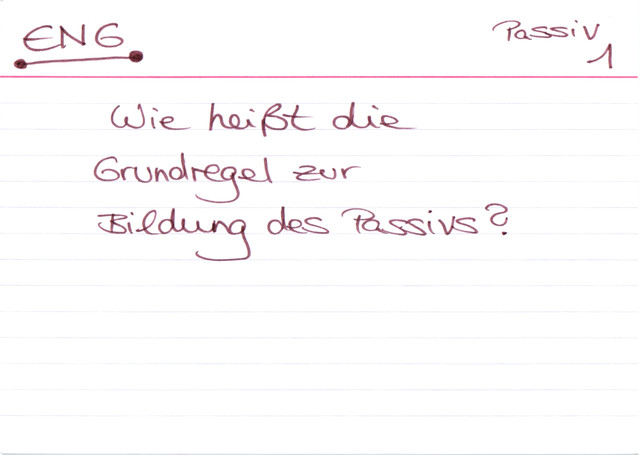 ENG
Passiv
1
Wie heißt die
Grundregel zur
Bildung des Passivs?